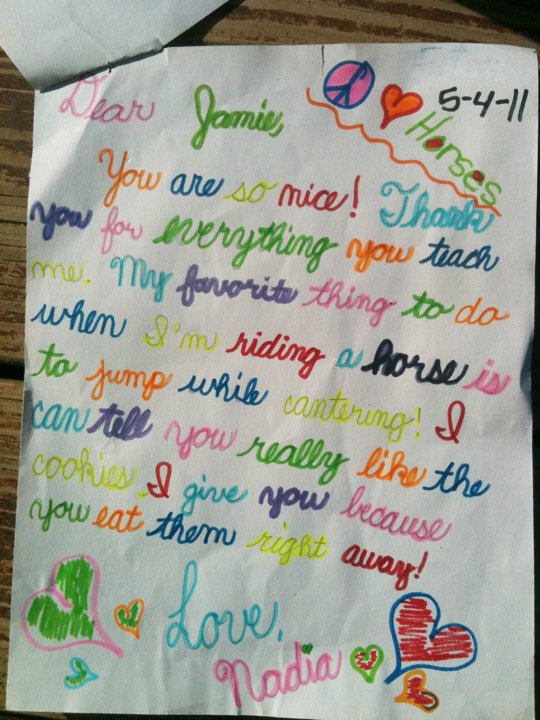 5-4-11
Dear Jamie,
Horses
You are so nice! Thank
you for everything you teach
me. My favorite thing to do
when I'm riding a horse is
to jump while cantering! I
can tell you really like the
cookies I give you because
you eat them right away!
Love,
Nadia